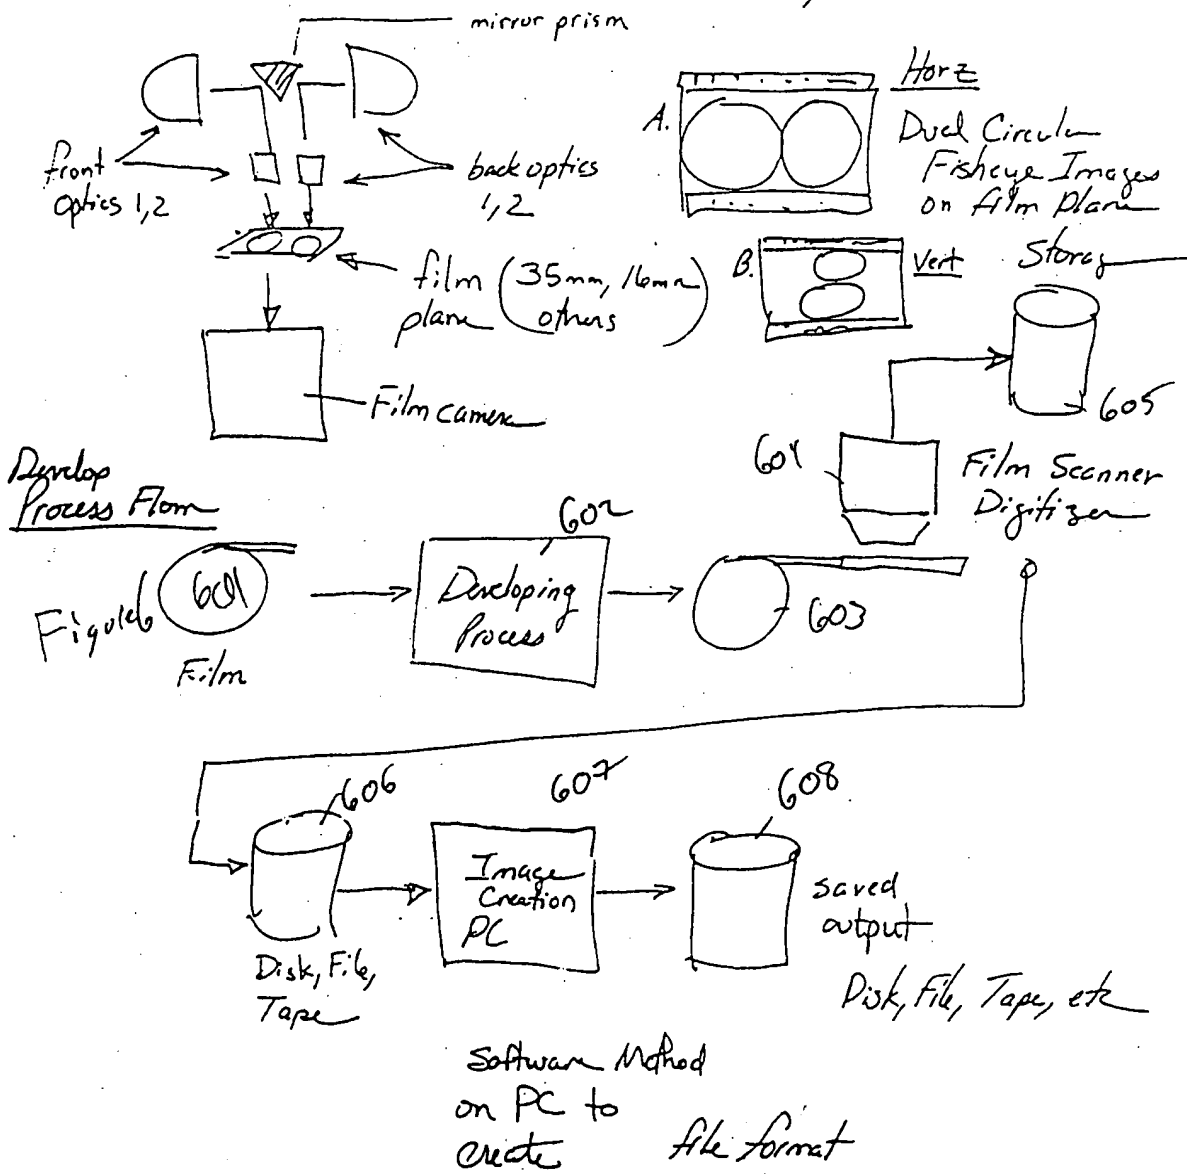 mirror prism
front
optics 1,2
back optics
1,2
film (35mm, 16mm
plane others)
Film camera
A.
Horz
Dual Circular
Fisheye Images
on film plane
B.
Vert
Storag
605
604
Film Scanner
Digitizer
Develop
Process Flow
Figure 6
601
Film
602
Developing
Process
603
606
Disk, File,
Tape
607
Image
Creation
PC
608
saved
output
Disk, File, Tape, etc
Software Method
on PC to
create file format